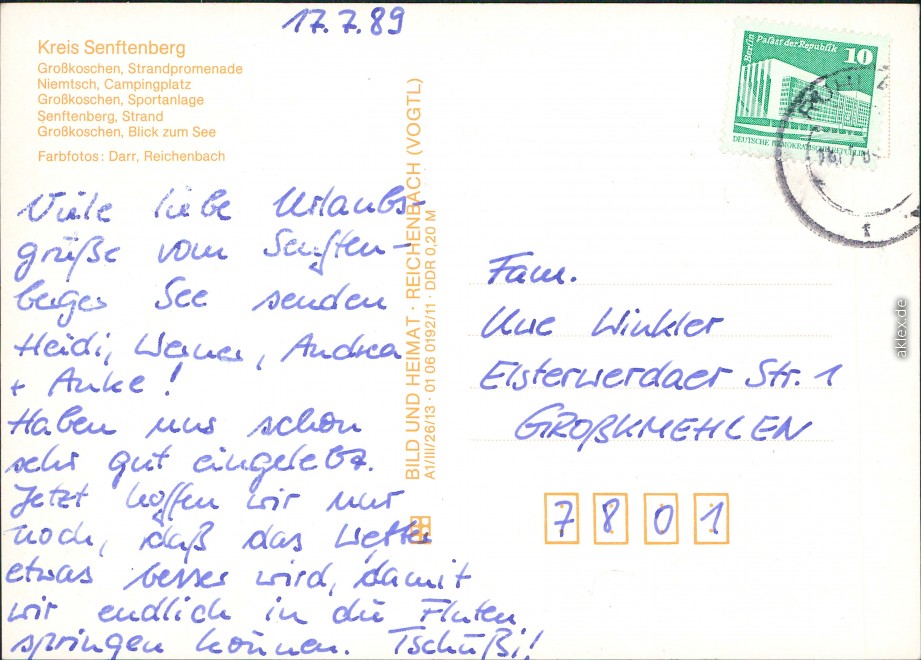 17.7.89
Kreis Senftenberg
Großkoschen, Strandpromenade
Niemtsch, Campingplatz
Großkoschen, Sportanlage
Senftenberg, Strand
Großkoschen, Blick zum See
Farbfotos: Darr, Reichenbach
Viele liebe Urlaubs-
grüße vom Senften-
berger See senden
Heidi, Werner, Andrea
+ Anke!
Haben uns schon
sehr gut eingelebt.
Jetzt hoffen wir nur
noch, daß das Wetter
etwas besser wird, damit
wir endlich in die Fluten
springen können. Tschüßi!
BILD UND HEIMAT · REICHENBACH (VOGTL)
A1/III/26/13 · 01 06 0192/11 · DDR 0,20 M
Berlin Palast der Republik
10
DEUTSCHE DEMOKRATISCHE REPUBLIK
Fam.
Uwe Winkler
Elsterwerdaer Str. 1
GROßKMEHLEN
7801
aklex.de